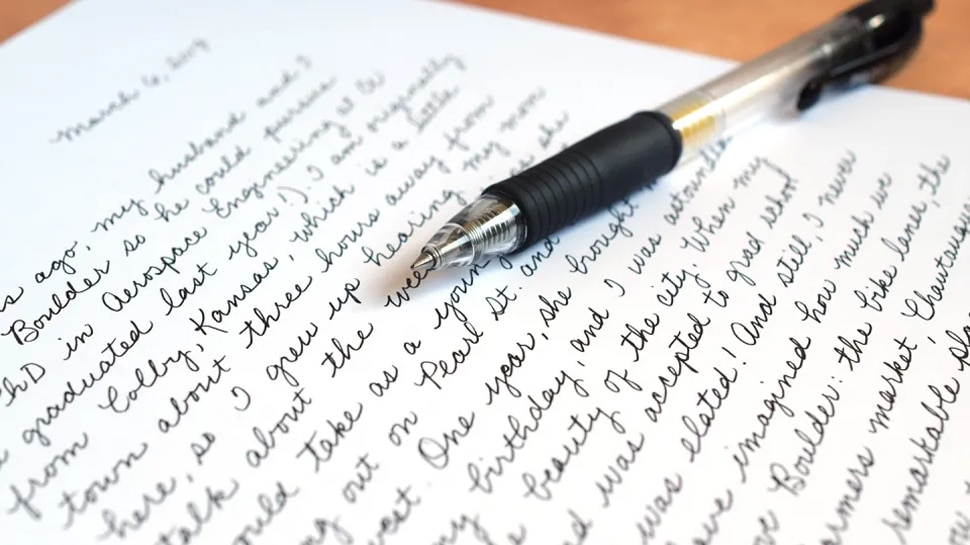 March 6, 2019
s ago, my husband and I
Boulder so he could pursue
PhD in Aerospace Engineering at CU
graduated last year!). I am originally
from Colby, Kansas, which is a little
town about three hours away from
here, so I grew up hearing my mom
talk about the she
ould take as a young
ng out on Pearl St. and
One year, she brought
birthday, and I was astounded
beauty of the city. When my
d was accepted to grad school
was elated! And still, I never
ave imagined how much we
ve Boulder: the bike lanes, the
armers market, Chautauqua
remarkable